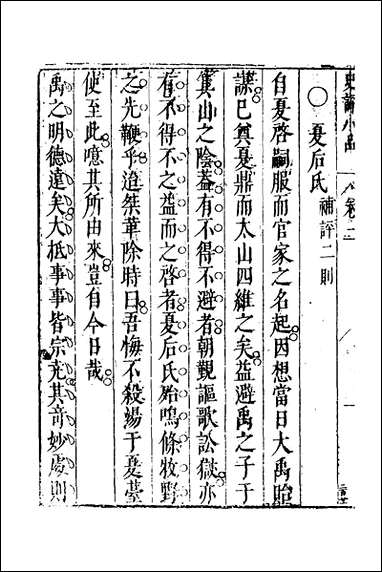 史讀小品　卷二
○夏后氏　補評二則
自夏啓嗣服而官家之名起因想當日大禹貽
謀已奠夏鼎而太山四維之矣益避禹之子于
箕山之陰葢有不得不避者朝覲謳歌訟獄亦
有不得不之益而之啓者夏后氏始嗚條牧野
之先鞭乎迨桀華除時曰吾悔不殺湯于夏臺
使至此噫其所由來豈自今日哉
禹之明德遠矣大抵事事皆宗堯其奇妙處則